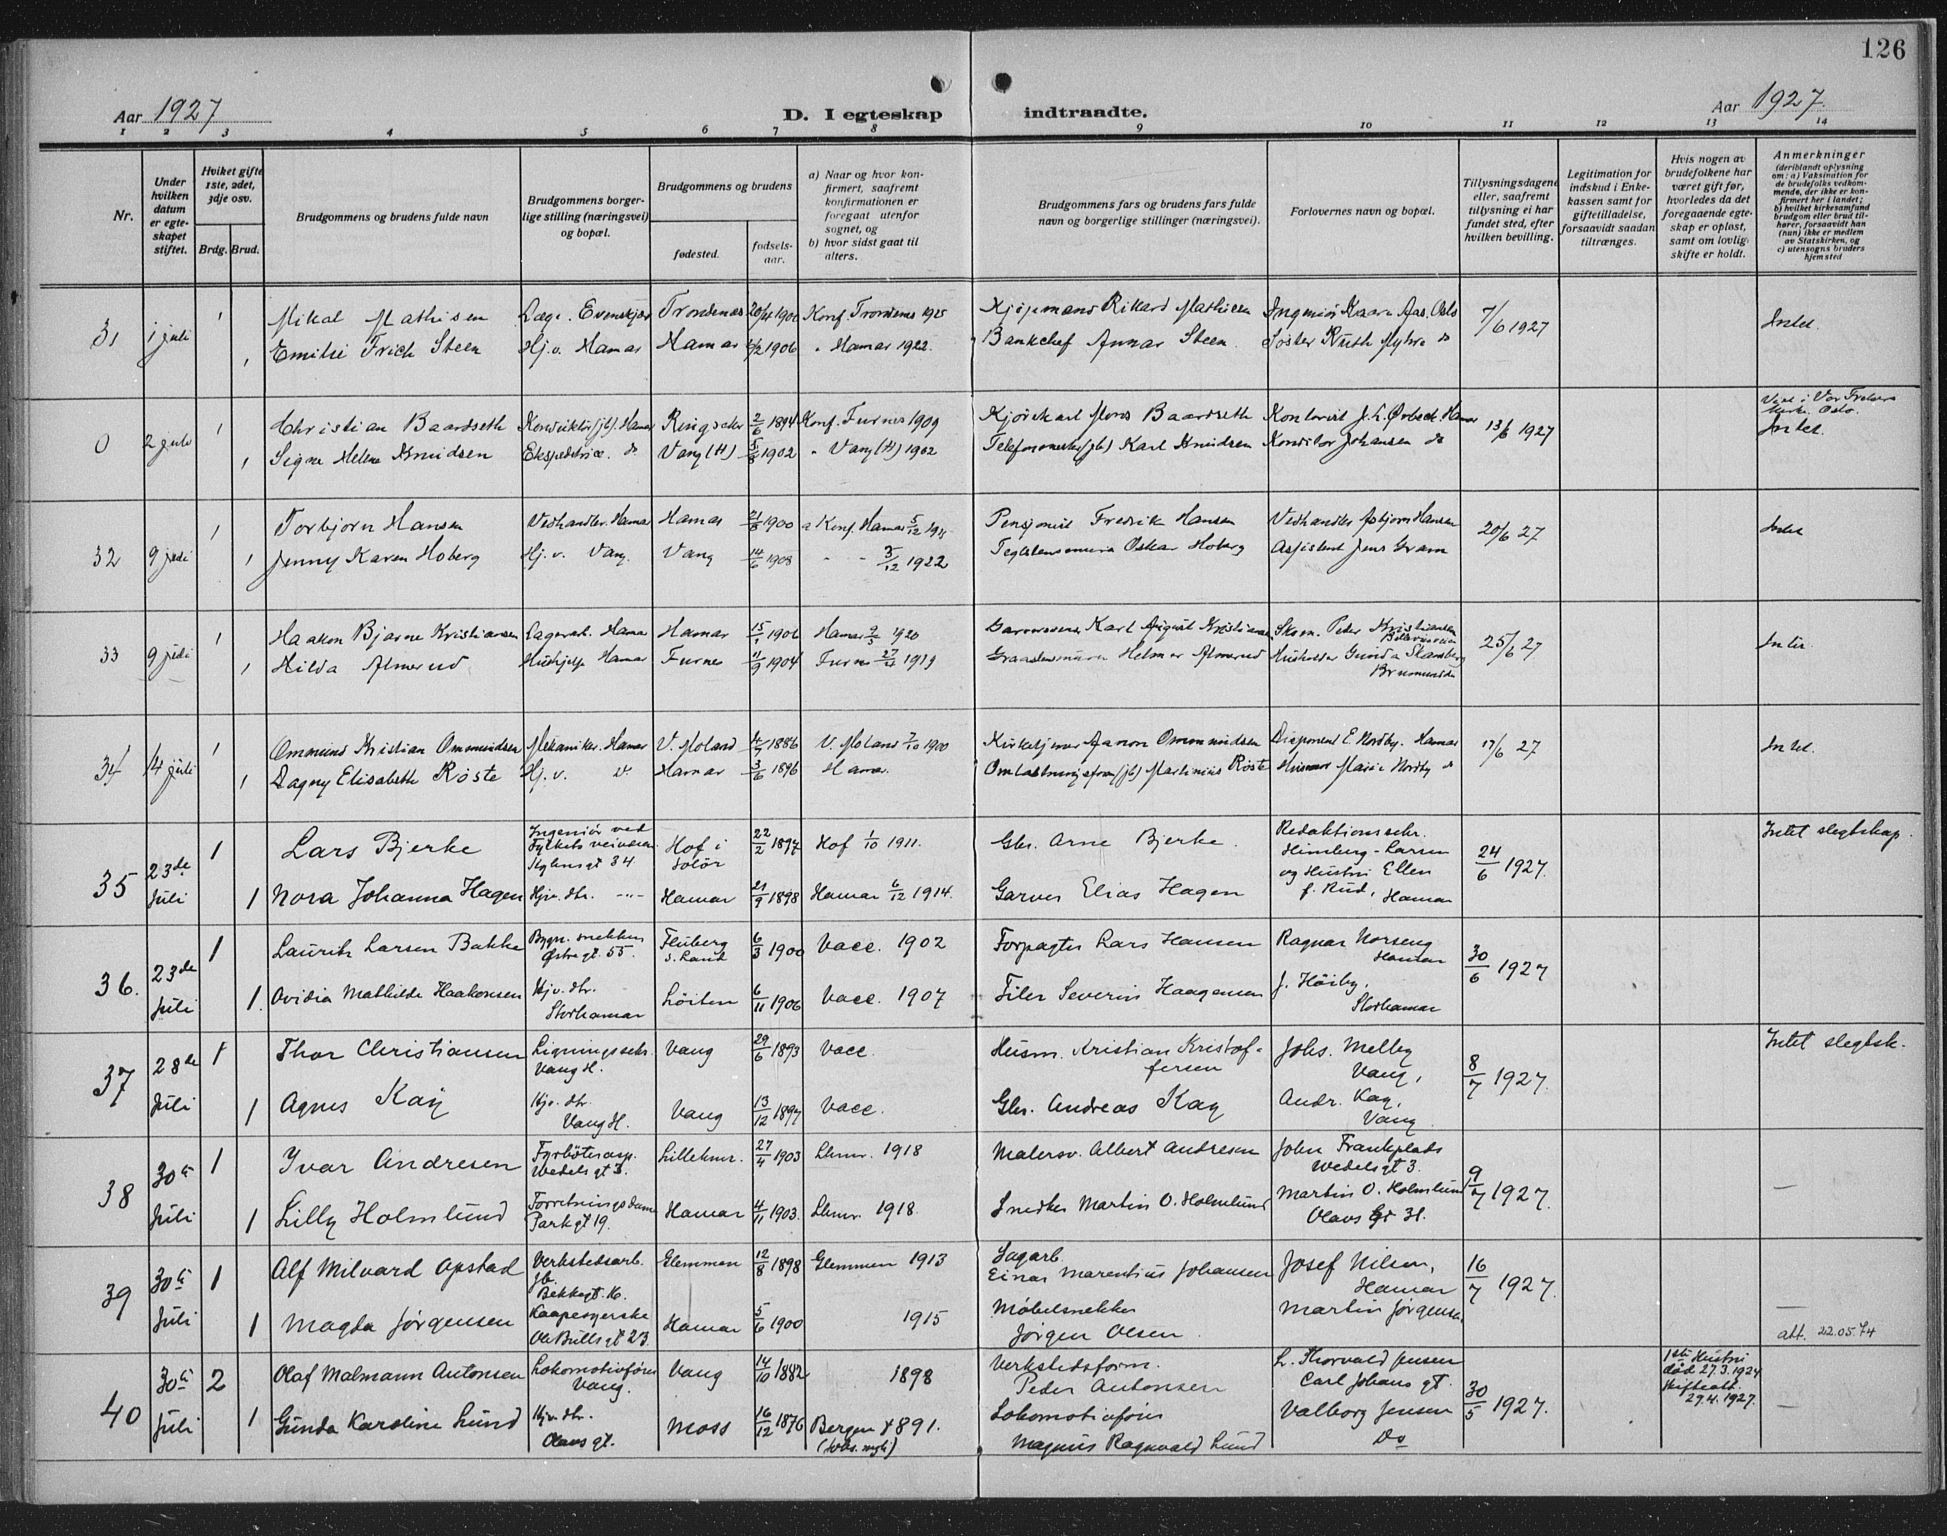 126
Aar 1927
D. I egteskap indtraadte.
Aar 1927.
1 2 3 4 5 6 7 8 9 10 11 12 13 14
Nr.
Under hvilken datum er egteskapet stiftet.
Hviket gifte 1ste, 2det, 3dje osv.
Brdg. Brud.
Brudgommens og brudens fulde navn
Brudgommens borgerlige stilling (næringsvei) og bopæl.
Brudgommens og brudens
fødested.
fødselsaar.
a) Naar og hvor konfirmert, saafremt konfirmationen er foregaat utenfor sognet, og
b) hvor sidst gaat til alters.
Brudgommens fars og brudens fars fulde navn og borgerlige stillinger (næringsvei).
Forlovernes navn og bopæl.
Tillysningsdagene eller, saafremt tillysning ei har fundet sted, efter hvilken bevilling.
Legitimation for indskud i Enkekassen samt for giftetilladelse, forsaavidt saadan tiltrænges.
Hvis nogen av brudefolkene har været gift før, hvorledes da det foregaaende egteskap er opløst, samt om lovlig skifte er holdt.
Anmerkninger
(deriblandt oplysning om: a) Vaksination for de brudefolks vedkommende, der ikke er konfirmert her i landet; b) hvilket kirkesamfund brudgom eller brud tilhører, forsaavidt han (hun) ikke er medlem av Statskirken, og c) utensogns bruders hjemsted
31 1 juli 1 Mikal Mathisen Læge. Evenskjær Trondenes Konf. Trondenes 1925 Kjøpmand Rikard Mathisen Ingeniør Kaare Aas. Oslo 7/6 1927 Intet.
1 Emilie Frich Steen Hj.v. Hamar Hamar 1906 " Hamar 1922. Bankchef Annar Steen. Søster Ruth Myhre do
0 2 juli 1 Christian Baardseth Konduktør (jb). Hamar Ringsaker 2/6 1894 Konf. Furnes 1909 Baardseth Kontorist Hamar 13/6 1927 Viet i Vor Frelsers Kirke. Oslo. Intet.
1 Signe Helene Knudsen Ekspeditrice. do Vang (H) 5/8 1902 " Vang (H) 1902 Karl Knudsen Konditor Johansen do
32 9 juli 1 Torbjørn Hansen Vedhandler. Hamar Hamar 21/8 1900 a Konf. Hamar 5/12 Pensjonist Fredrik Hansen Vedhandler Asbjørn Hansen 20/6 27 Intet
1 Jenny Karen Hoberg Hj.v. Vang. Vang 14/6 1908 " " 3/12 1922 Teglstensmurer Oskar Hoberg Assistent Jens Gram
33 9 juli 1 Haakon Bjarne Kristiansen Lagerarb. Hamar Hamar 15/1 1906 Hamar 1920 Karl August Kristiansen Peder Kristiansen 25/6 27 Intet.
1 Hilda Almerud Hushjelp Hamar Furnes 11/9 1904 Furnes 1919 Graastensmurer Helmer Almerud Husholder Gunda Brumunddal
34 14 juli 1 Ommund Kristian Ommundsen Mekaniker. Hamar V. Moland 4/7 1886 V. Moland 7/10 1900 Kirketjener Aanon Ommundsen Disponent E. Nordby. Hamar 17/6 27 Intet.
1 Dagny Elisabeth Røste Hj.v. Hamar 3/6 1896 Hamar Martinius Røste Hustru Marie Nordby do
35 23de Juli 1 Lars Bjerke Ingeniør ved Fylkets veivæsen gt 34 Hof i Solør 22/2 1897 Hof 1/10 1911. Gbr. Arne Bjerke. Redaktionssekr. Himberg-Larsen 24/6 1927. Intet slegtskap.
1 Nora Johanna Hagen Hjv. dtr. -"- Hamar 21/9 1898 Hamar 6/12 1914. Garver Elias Hagen og Hustru Ellen f. Rud, Hamar
36. 23de Juli 1 Laurits Larsen Bakke Bygn. snekker Østre gt. 55. Fluberg S. Land 6/3 1900 Vacc. 1902 Forpagter Lars Hansen Ragnar Norseng Hamar 30/6 1927
1. Ovidia Mathilde Haakonsen Hjv. dtr. Storhamar Løiten 6/11 1906 Vacc. 1907 Filer Severin Haagensen J. Høiby, Storhamar
37 28de Juli 1 Thor Christiansen Ligningssekr. Vang H. Vang 29/6 1893 Vacc. Husm. Kristian Kristoffersen Johs. Melby Vang, 8/7 1927. Intet slegtsk.
1 Agnes Kaij Hjv. dtr. Vang H. Vang 13/12 1897 Vacc. Gbr. Andreas Kay Andr. Kay, Vang
38 30te Juli 1 Yvar Andresen Fyrbøterasp. Wedels gt 3. Lillehmr. 27/4 1903 Lhmr. 1918 Malersv. Albert Andresen John Frankplads Wedelsgt 3. 9/7 1927. —
1 Lilly Holmlund Forretningsdame Parkgt 19. Hamar 4/11 1903. Lhmr. 1918. Snedker Martin O. Holmlund Martin O. Holmlund Olavs gt
39 30te Juli 1 Alf Milvard Opstad Verkstedsarb. jb. Bekkegt. 16. Glemmen 12/8 1898 Glemmen 1913 Sagarb. Einar Marentius Johansen Josef Nilsen, Hamar 16/7 1927. —
1 Magda Jørgensen Kaapesyerske Ole Bulls gt 23. Hamar 5/6 1900 1915 Møbelsnekker Jørgen Olsen Martin Jørgensen att. 22.05.74
40 30te Juli 2 Olaf Malmann Antonsen Lokomotivfører Vang. Vang 14/10 1882 1898 Verkstedsform. Peder Antonsen L. Thorvald Jensen Carl Johans gt. 30/5 1927. 1ste Hustru død 27.3.1924 skifteatt. 29.4.1927. —
1 Gunda Karoline Lund Hjv. dtr. Olavs gt. Moss 16/12 1876 Bergen 1891. Lokomotivfører Magnus Ragnvald Lund Valborg Jensen Do